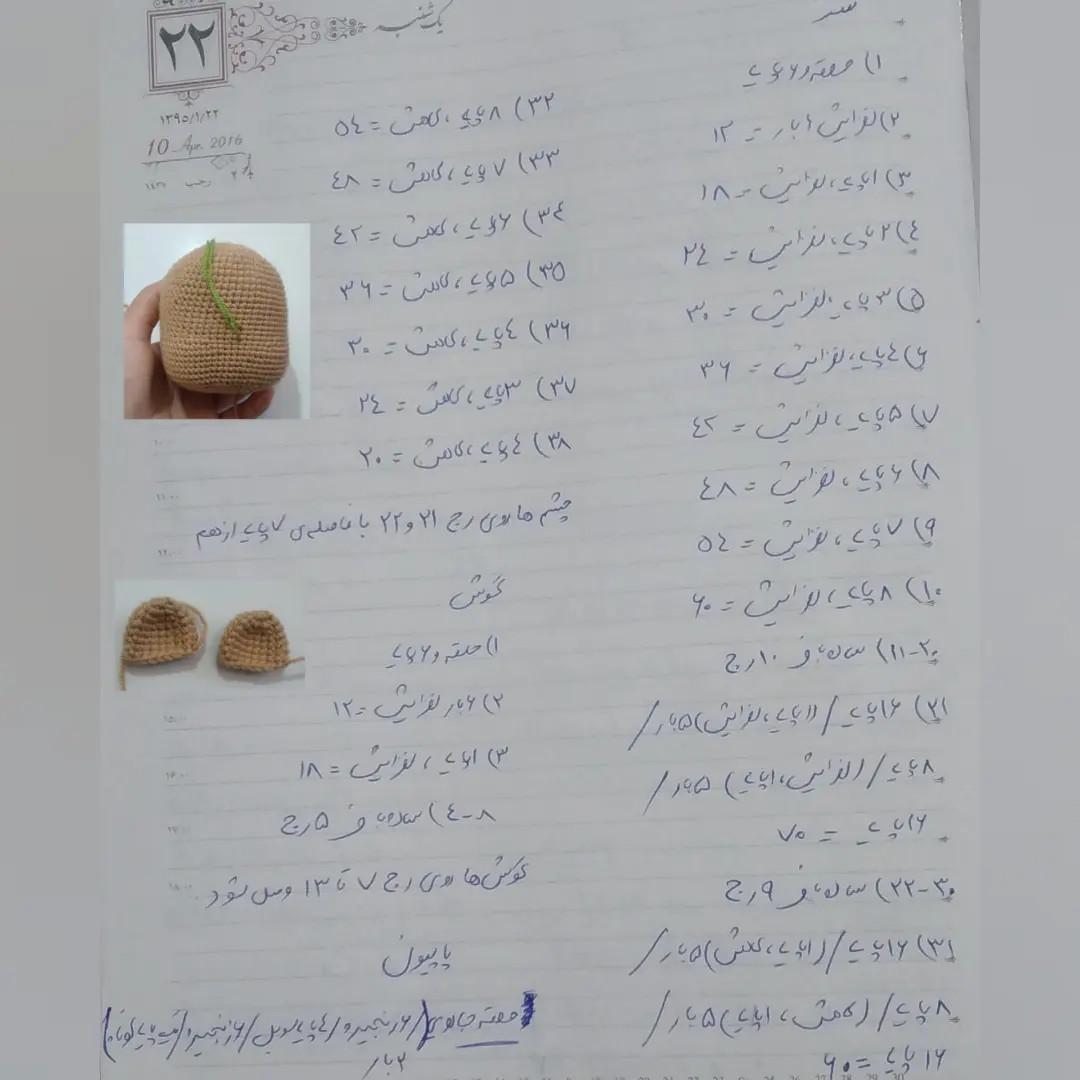 یکشنبه
۲۲
۱۳۹۵/۱/۲۲
10 Apr. 2016
۲ رجب ۱۴۳۷
سر
۱) حلقه و ۶ پایه
۲) افزایش ۶ بار = ۱۲
۳) ۱ پایه، افزایش = ۱۸
۴) ۲ پایه، افزایش = ۲۴
۵) ۳ پایه، افزایش = ۳۰
۶) ۴ پایه، افزایش = ۳۶
۷) ۵ پایه، افزایش = ۴۲
۸) ۶ پایه، افزایش = ۴۸
۹) ۷ پایه، افزایش = ۵۴
۱۰) ۸ پایه، افزایش = ۶۰
۱۱-۲۰) ساده بافی ۱۰ رج
۲۱) ۱۶ پایه / (۱ پایه، افزایش) ۵ بار /
۸ پایه / (افزایش، ۱ پایه) ۵ بار /
۱۶ پایه = ۷۰
۲۲-۳۰) ساده بافی ۹ رج
۳۱) ۱۶ پایه / (۱ پایه، کاهش) ۵ بار /
۸ پایه / (کاهش، ۱ پایه) ۵ بار /
۱۶ پایه = ۶۰
۳۲) ۸ پایه، کاهش = ۵۴
۳۳) ۷ پایه، کاهش = ۴۸
۳۴) ۶ پایه، کاهش = ۴۲
۳۵) ۵ پایه، کاهش = ۳۶
۳۶) ۴ پایه، کاهش = ۳۰
۳۷) ۳ پایه، کاهش = ۲۴
۳۸) ۴ پایه، کاهش = ۲۰
چشم ها روی رج ۲۱ و ۲۲ با فاصله ی ۷ پایه از هم
گوش
۱) حلقه و ۶ پایه
۲) ۶ بار افزایش = ۱۲
۳) ۱ پایه، افزایش = ۱۸
۴-۸) ساده بافی ۵ رج
گوش ها روی رج ۷ تا ۱۳ وصل شود
پاپیون
حلقه جادویی (۶ زنجیره / ۴ پایه دوبل / ۶ زنجیره / پایه کوتاه)
۲ بار